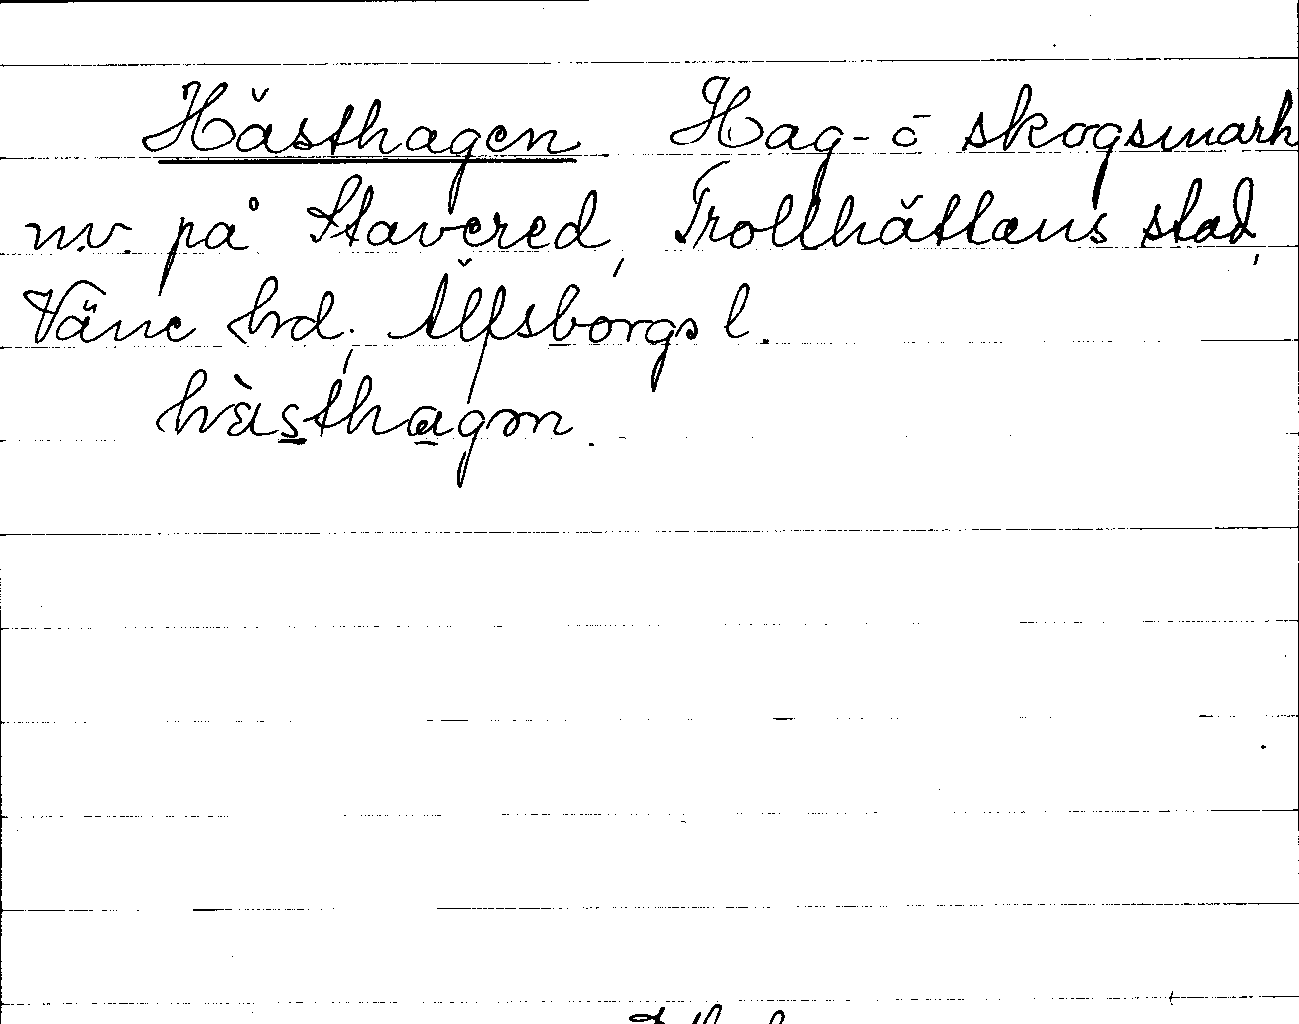 Hästhagen Hag- o skogsmark
n.v. på Stavered, Trollhättans stad,
Väne hrd, Älfsborgs l.
hàsthagən.